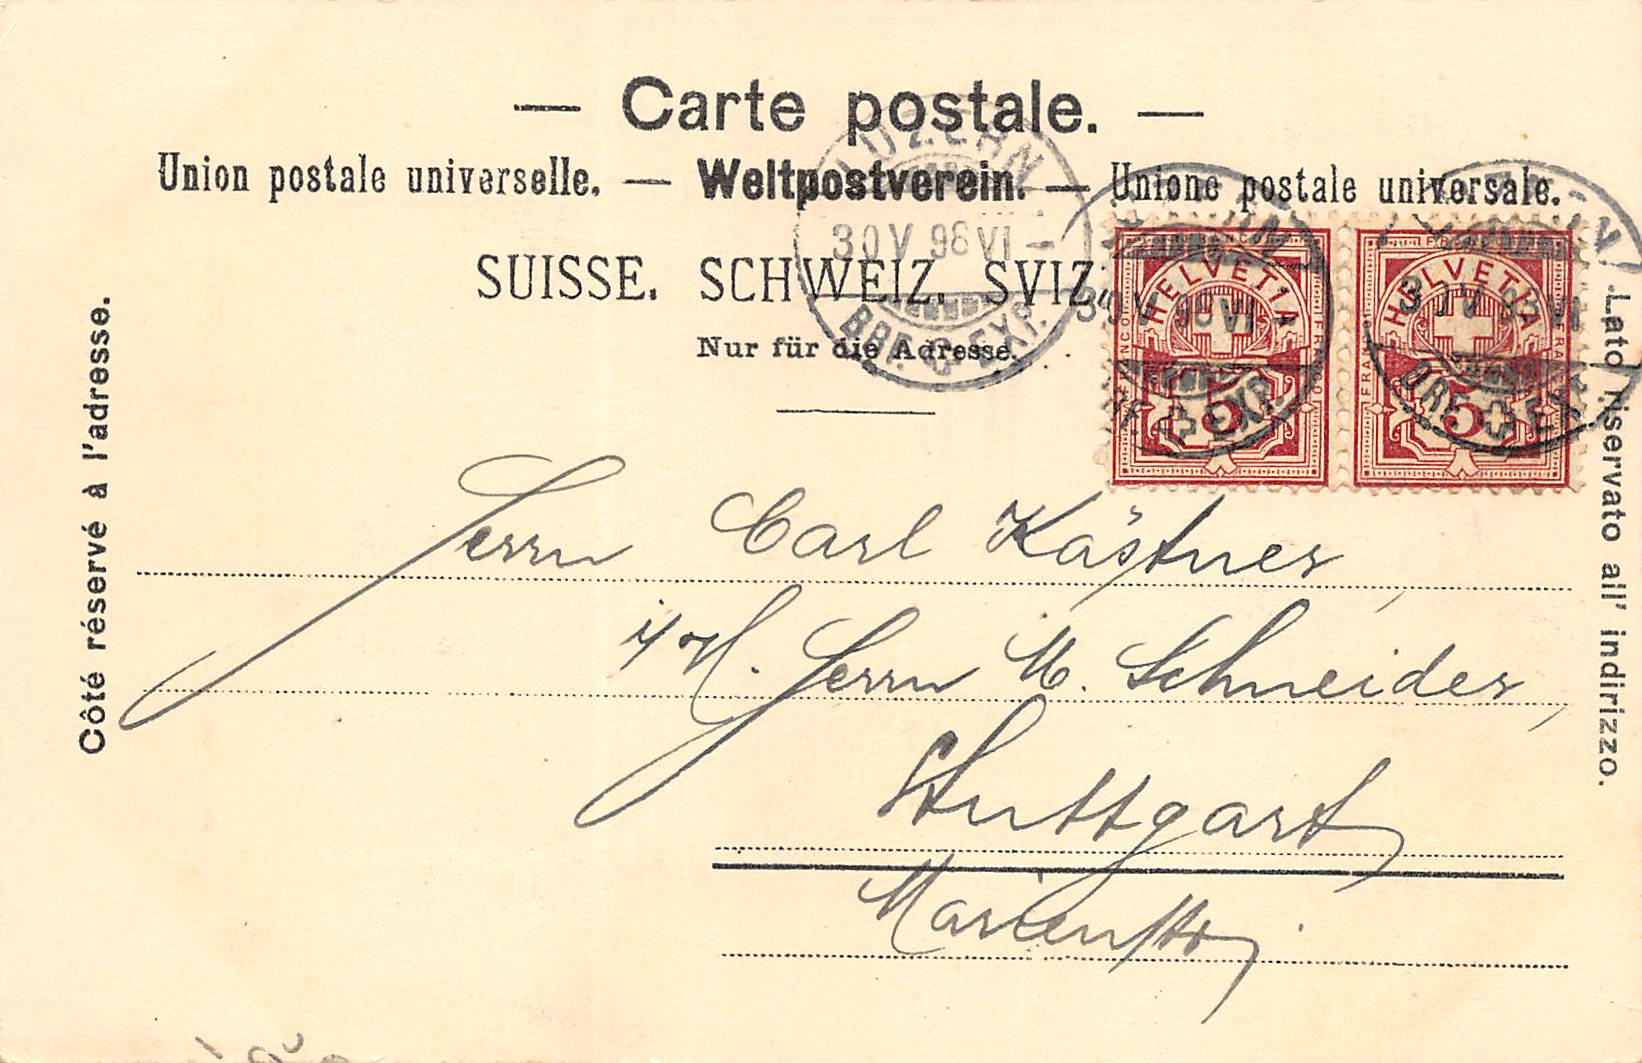 — Carte postale. —
Union postale universelle. — Weltpostverein. — Unione postale universale.
SUISSE. SCHWEIZ. SVIZ
Nur für die Adresse.
Côté réservé à l'adresse.
Lato riservato all' indirizzo.
LUZERN
30 V 98 VI –
BRF. EXP.
HELVETIA
FRANCO
5
HELVETIA
FRANCO
5
Herrn Carl Kästner
Herrn M. Schneider,
Stuttgart
Marienstr